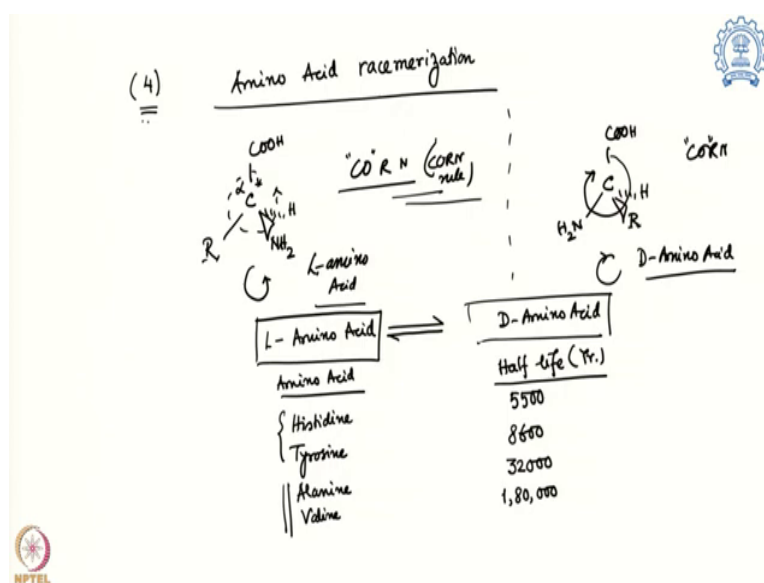 (4) Amino Acid racemerization
COOH
α
C *
H
R
NH2
"CO" R N (CORN rule)
L-amino Acid
COOH
"CO"RN
C
H
H2N
R
D-Amino Acid
L- Amino Acid ⇌ D-Amino Acid
Amino Acid Half life (Yr.)
Histidine 5500
Tyrosine 8600
Alanine 32000
Valine 1,80,000
NPTEL